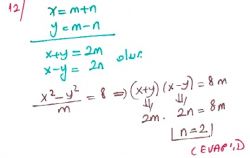 12/
x = m+n
y = m-n
x+y = 2m
x-y = 2n olur.
x²-y²/m = 8 ⇒ (x+y)(x-y) = 8m
⇓ ⇓
2m. 2n = 8m
n=2
(CEVAP: D)